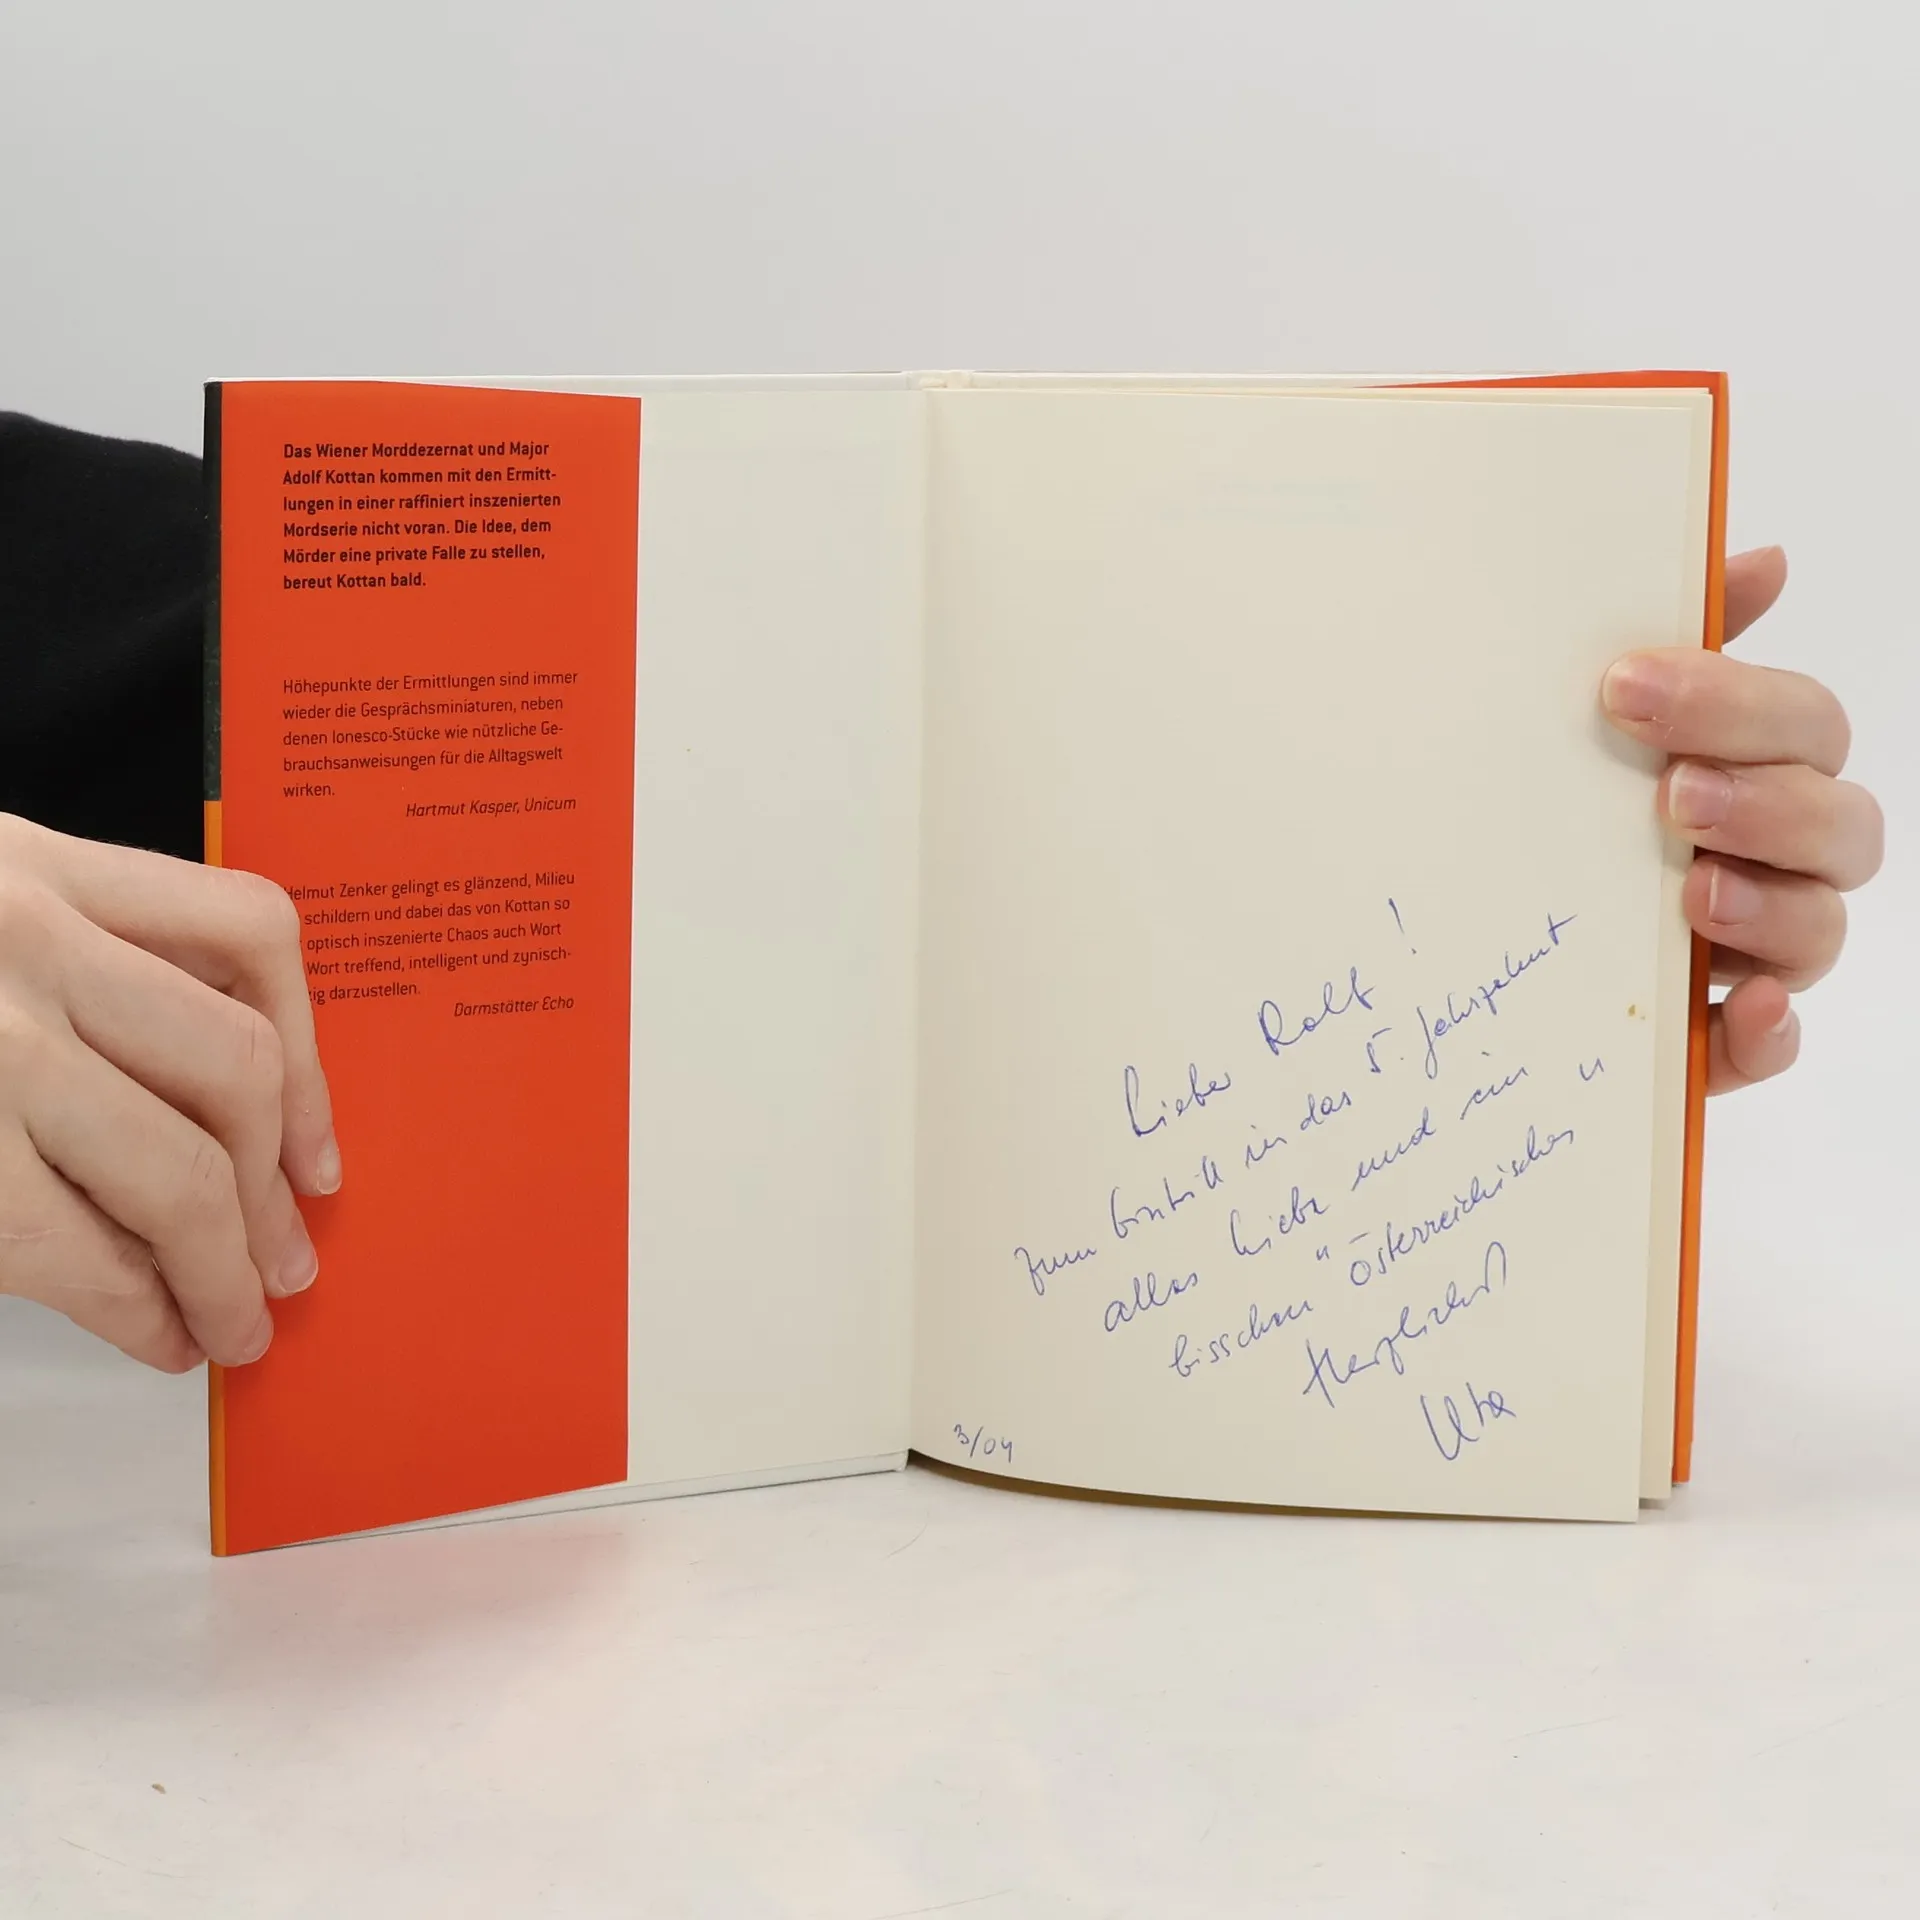 Das Wiener Morddezernat und Major
Adolf Kottan kommen mit den Ermitt-
lungen in einer raffiniert inszenierten
Mordserie nicht voran. Die Idee, dem
Mörder eine private Falle zu stellen,
bereut Kottan bald.
Höhepunkte der Ermittlungen sind immer
wieder die Gesprächsminiaturen, neben
denen Ionesco-Stücke wie nützliche Ge-
brauchsanweisungen für die Alltagswelt
wirken.
Hartmut Kasper, Unicum
Helmut Zenker gelingt es glänzend, Milieu
schildern und dabei das von Kottan so
optisch inszenierte Chaos auch Wort
Wort treffend, intelligent und zynisch-
darzustellen.
Darmstätter Echo
Lieber Rolf!
Zum Eintritt in das 5. Jahrzehnt
alles Liebe und ein
bisschen "Österreichisches"
Herzlichst
Uta
3/04